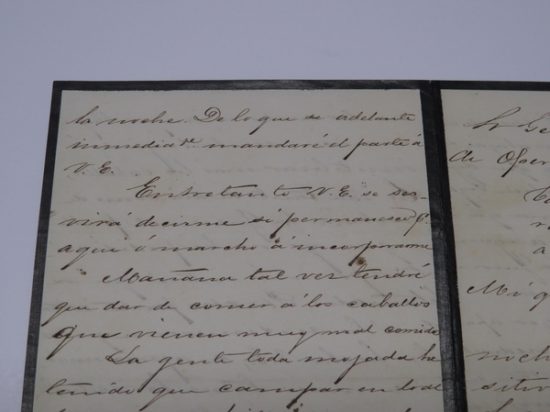 la noche. De lo que se adelante
inmediate. mandaré el parte á
V. E.
Entretanto V. E. se ser-
virá decirme si permanesco pr.
aqui ó marcho á incorporarme
Mañana tal vez tendré
que dar de comer á los caballos
que vienen muy mal comidos
La gente toda mojada ha
tenido que campar en lodo
Sr Ge
de Oper
a
Mi q
noche
sitiv